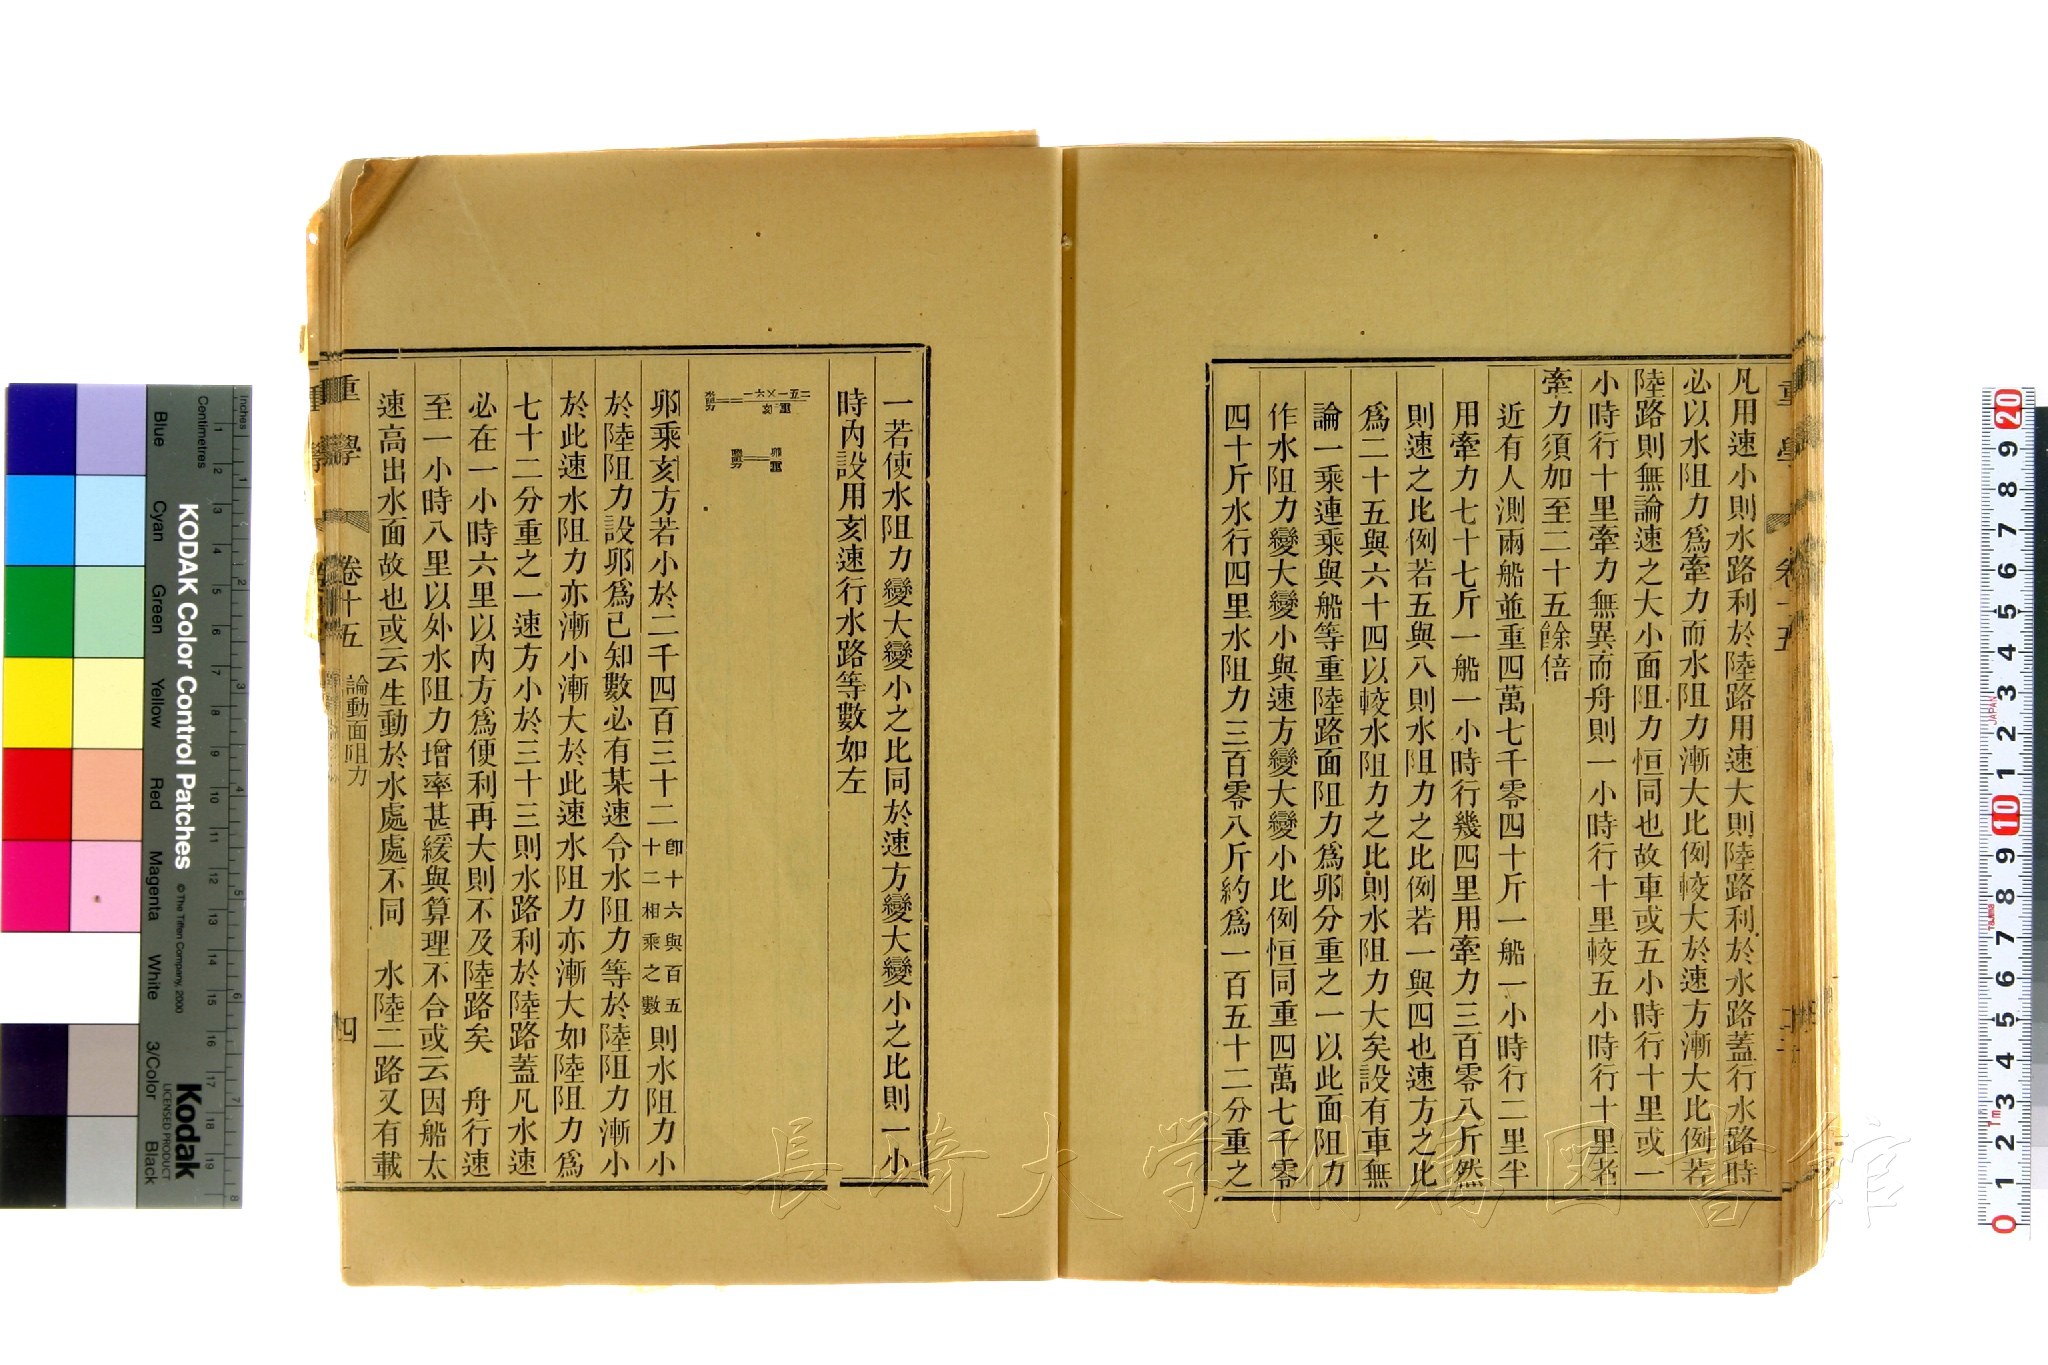 凡用速小則水路利於陸路用速大則陸路利於水路蓋行水路時
必以水阻力爲牽力而水阻力漸大比例較大於速方漸大比例若
陸路則無論速之大小面阻力恒同也故車或五小時行十里或一
小時行十里牽力無異而舟則一小時行十里較五小時行十里者
牽力須加至二十五餘倍
近有人測兩船並重四萬七千零四十斤一船一小時行二里半
用牽力七十七斤一船一小時行幾四里用牽力三百零八斤然
則速之比例若五與八則水阻力之比例若一與四也速方之比
爲二十五與六十四以較水阻力之比則水阻力大矣設有車無
論一乘連乘與船等重陸路面阻力爲卯分重之一以此面阻力
作水阻力變大變小與速方變大變小比例恒同重四萬七千零
四十斤水行四里水阻力三百零八斤約爲一百五十二分重之
一若使水阻力變大變小之比同於速方變大變小之比則一小
時內設用亥速行水路等數如左
卯乘亥方若小於二千四百三十二卽十六與百五十二相乘之數則水阻力小
於陸阻力設卯爲已知數必有某速令水阻力等於陸阻力漸小
於此速水阻力亦漸小漸大於此速水阻力亦漸大如陸阻力爲
七十二分重之一速方小於三十三則水路利於陸路蓋凡水速
必在一小時六里以內方爲便利再大則不及陸路矣　舟行速
至一小時八里以外水阻力增率甚緩與算理不合或云因船太
速高出水面故也或云生動於水處處不同　水陸二路又有載
重學
卷十五
論動面阻力
四
KODAK Color Control Patches
© The Tiffen Company, 2000
Kodak
LICENSED PRODUCT
Blue
Cyan
Green
Yellow
Red
Magenta
White
3/Color
Black
Inches
Centimetres
JAPAN
長崎大学附属図書館